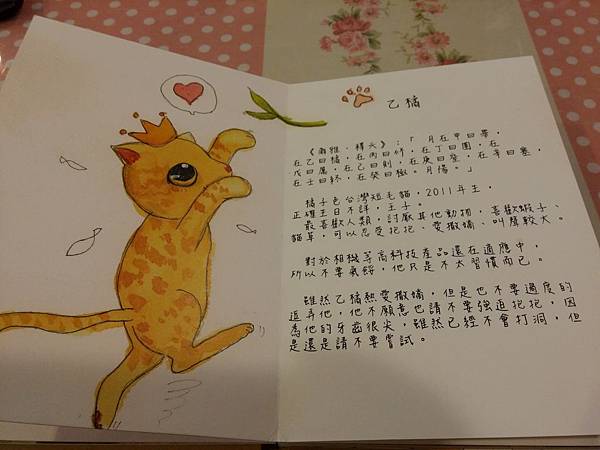 乙橘
《爾雅·釋天》:「月在甲曰畢,
在乙曰橘,在丙曰修,在丁曰圉,在
戊曰厲,在己曰則,在庚曰窒,在辛曰塞,
在壬曰終,在癸曰極。月陽。」
橘子色台灣短毛貓,2011年生,
正確生日不詳,王子。
最喜歡人類,討厭其他動物,喜歡蝦子、
貓草,可以忍受抱抱、愛撒嬌、叫聲較大。
對於相機等高科技產品還在適應中,
所以不要氣餒,他只是不太習慣而已。
雖然乙橘熱愛撒嬌,但是也不要過度的
追弄他,他不願意也請不要強迫抱抱,因
為他的牙齒很尖,雖然已經不會打洞,但
是還是請不要嘗試。